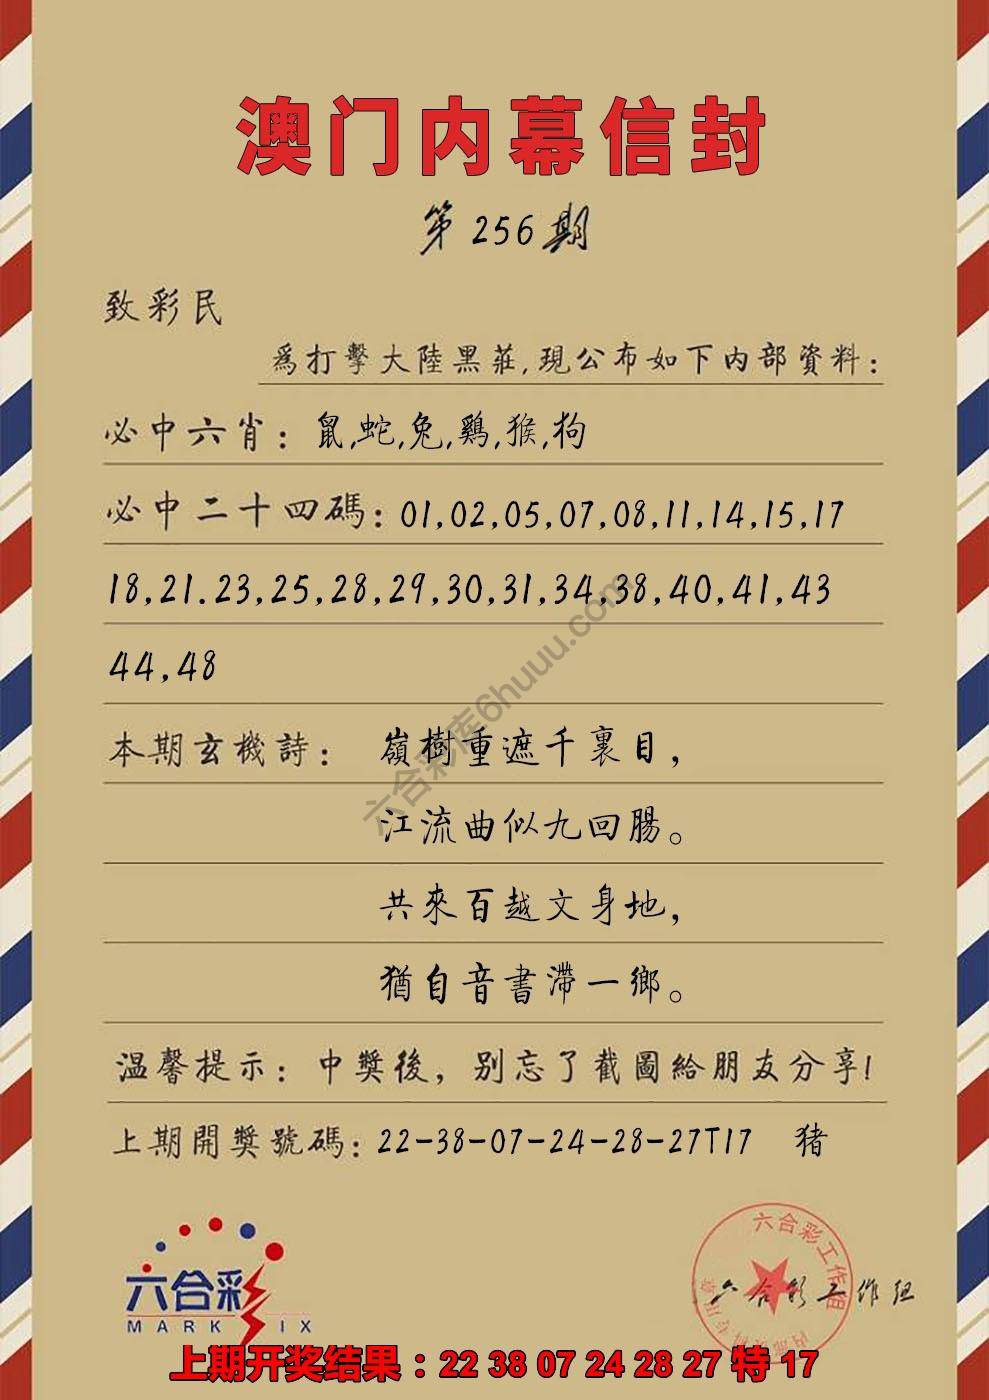 澳门内幕信封
第256期
致彩民
爲打擊大陸黑莊,現公布如下内部資料:
必中六肖:鼠,蛇,兔,鷄,猴,狗
必中二十四碼:01,02,05,07,08,11,14,15,17
18,21.23,25,28,29,30,31,34,38,40,41,43
44,48
六合彩库6huuu.com
本期玄機詩: 嶺樹重遮千裏目,
江流曲似九回腸。
共來百越文身地,
猶自音書滯一鄉。
温馨提示:中獎後,别忘了截圖給朋友分享!
上期開獎號碼:22-38-07-24-28-27T17 猪
六合彩
MARK SIX
六合彩工作组
六合彩工作组
上期开奖结果:22 38 07 24 28 27 特 17